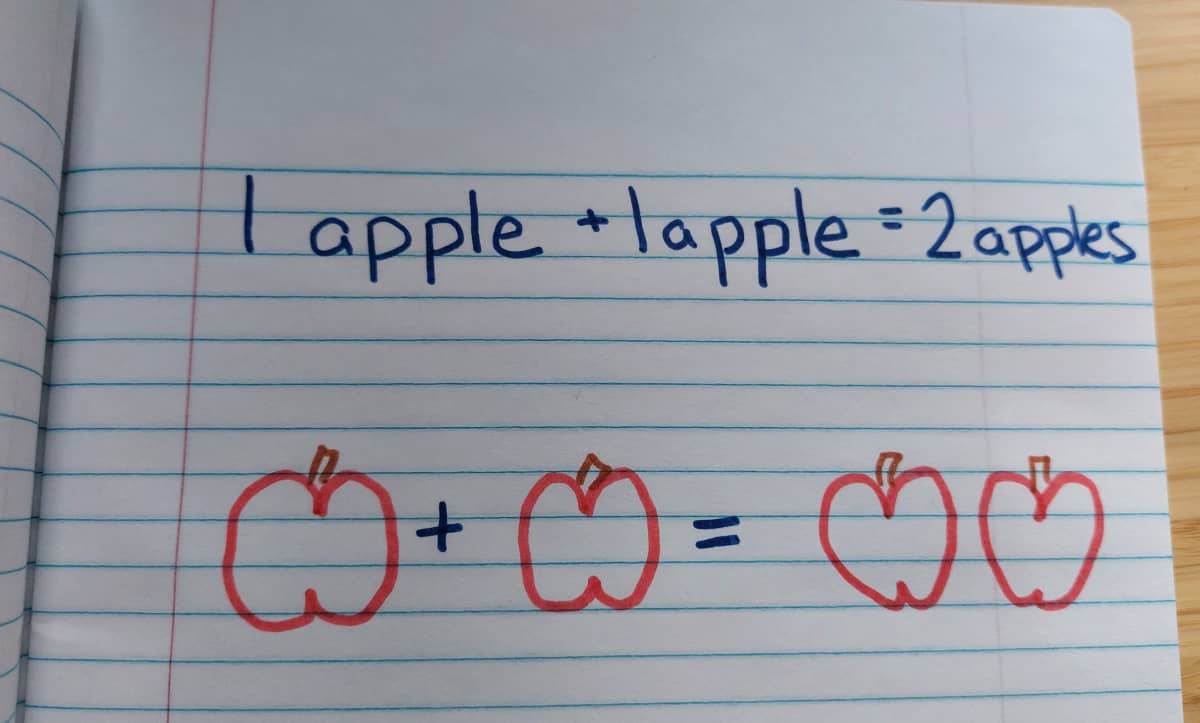 1 apple + 1 apple = 2 apples
+ =